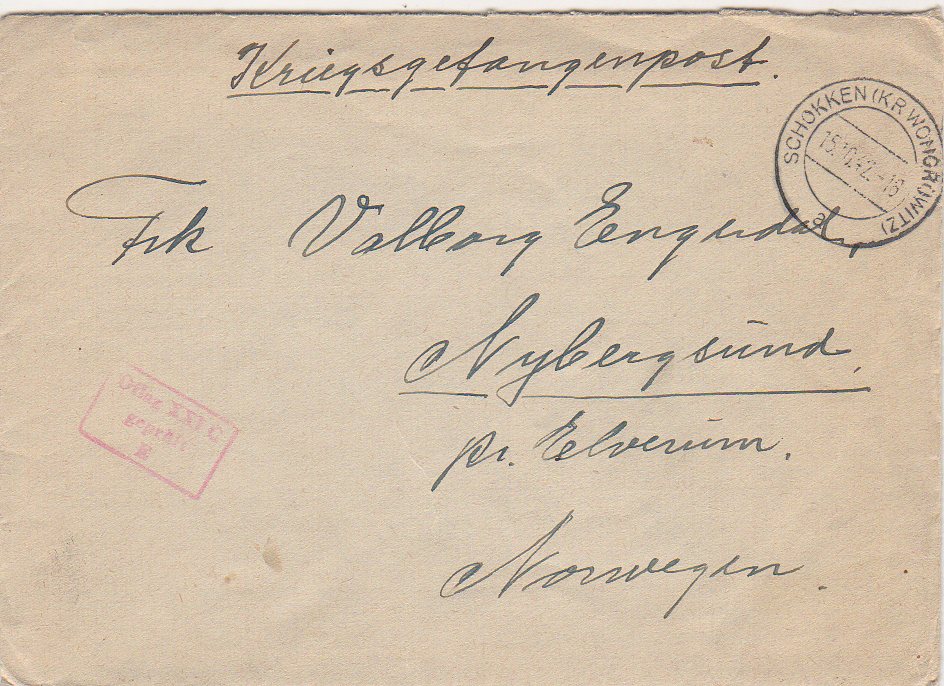 Kriegsgefangenpost.
SCHOKKEN (KR WONGROWITZ)
15.10.42.-18
a
Frk Valborg Engerdal,
Nybergsund.
pr. Elverum.
Norwegen.
Oflag XXI C
geprüft